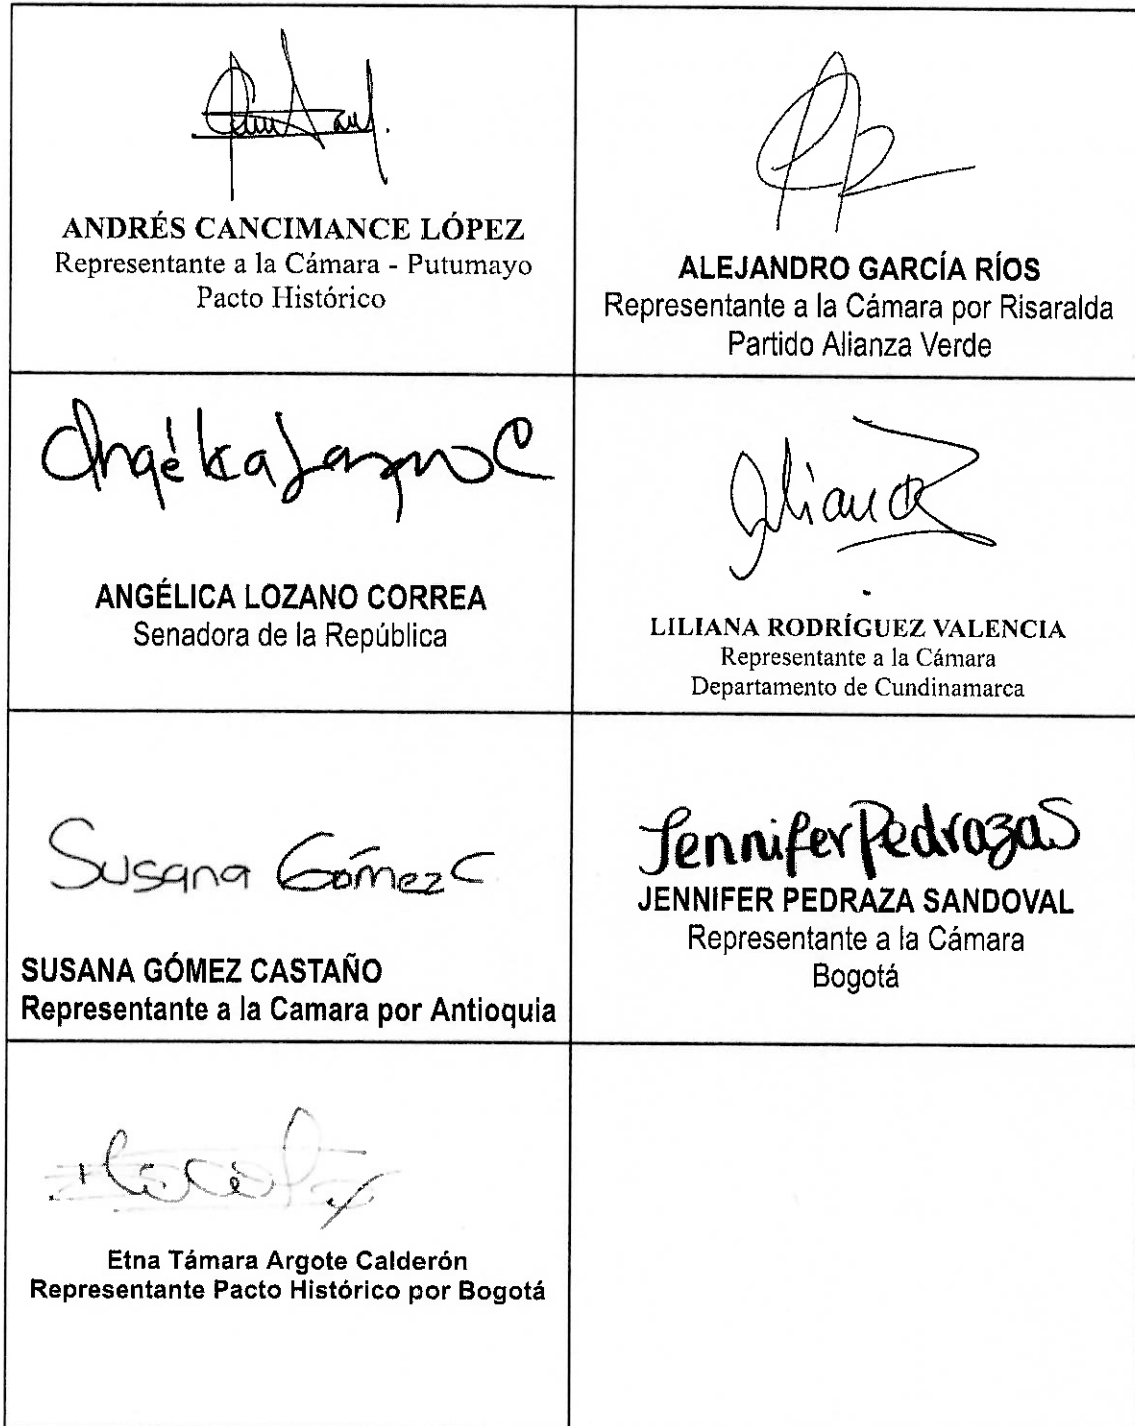 ANDRÉS CANCIMANCE LÓPEZ
Representante a la Cámara - Putumayo
Pacto Histórico
ALEJANDRO GARCÍA RÍOS
Representante a la Cámara por Risaralda
Partido Alianza Verde
Angélica Lozano C
ANGÉLICA LOZANO CORREA
Senadora de la República
LILIANA RODRÍGUEZ VALENCIA
Representante a la Cámara
Departamento de Cundinamarca
Susana Gómez C
SUSANA GÓMEZ CASTAÑO
Representante a la Camara por Antioquia
Jennifer Pedraza S
JENNIFER PEDRAZA SANDOVAL
Representante a la Cámara
Bogotá
Etna Támara Argote Calderón
Representante Pacto Histórico por Bogotá